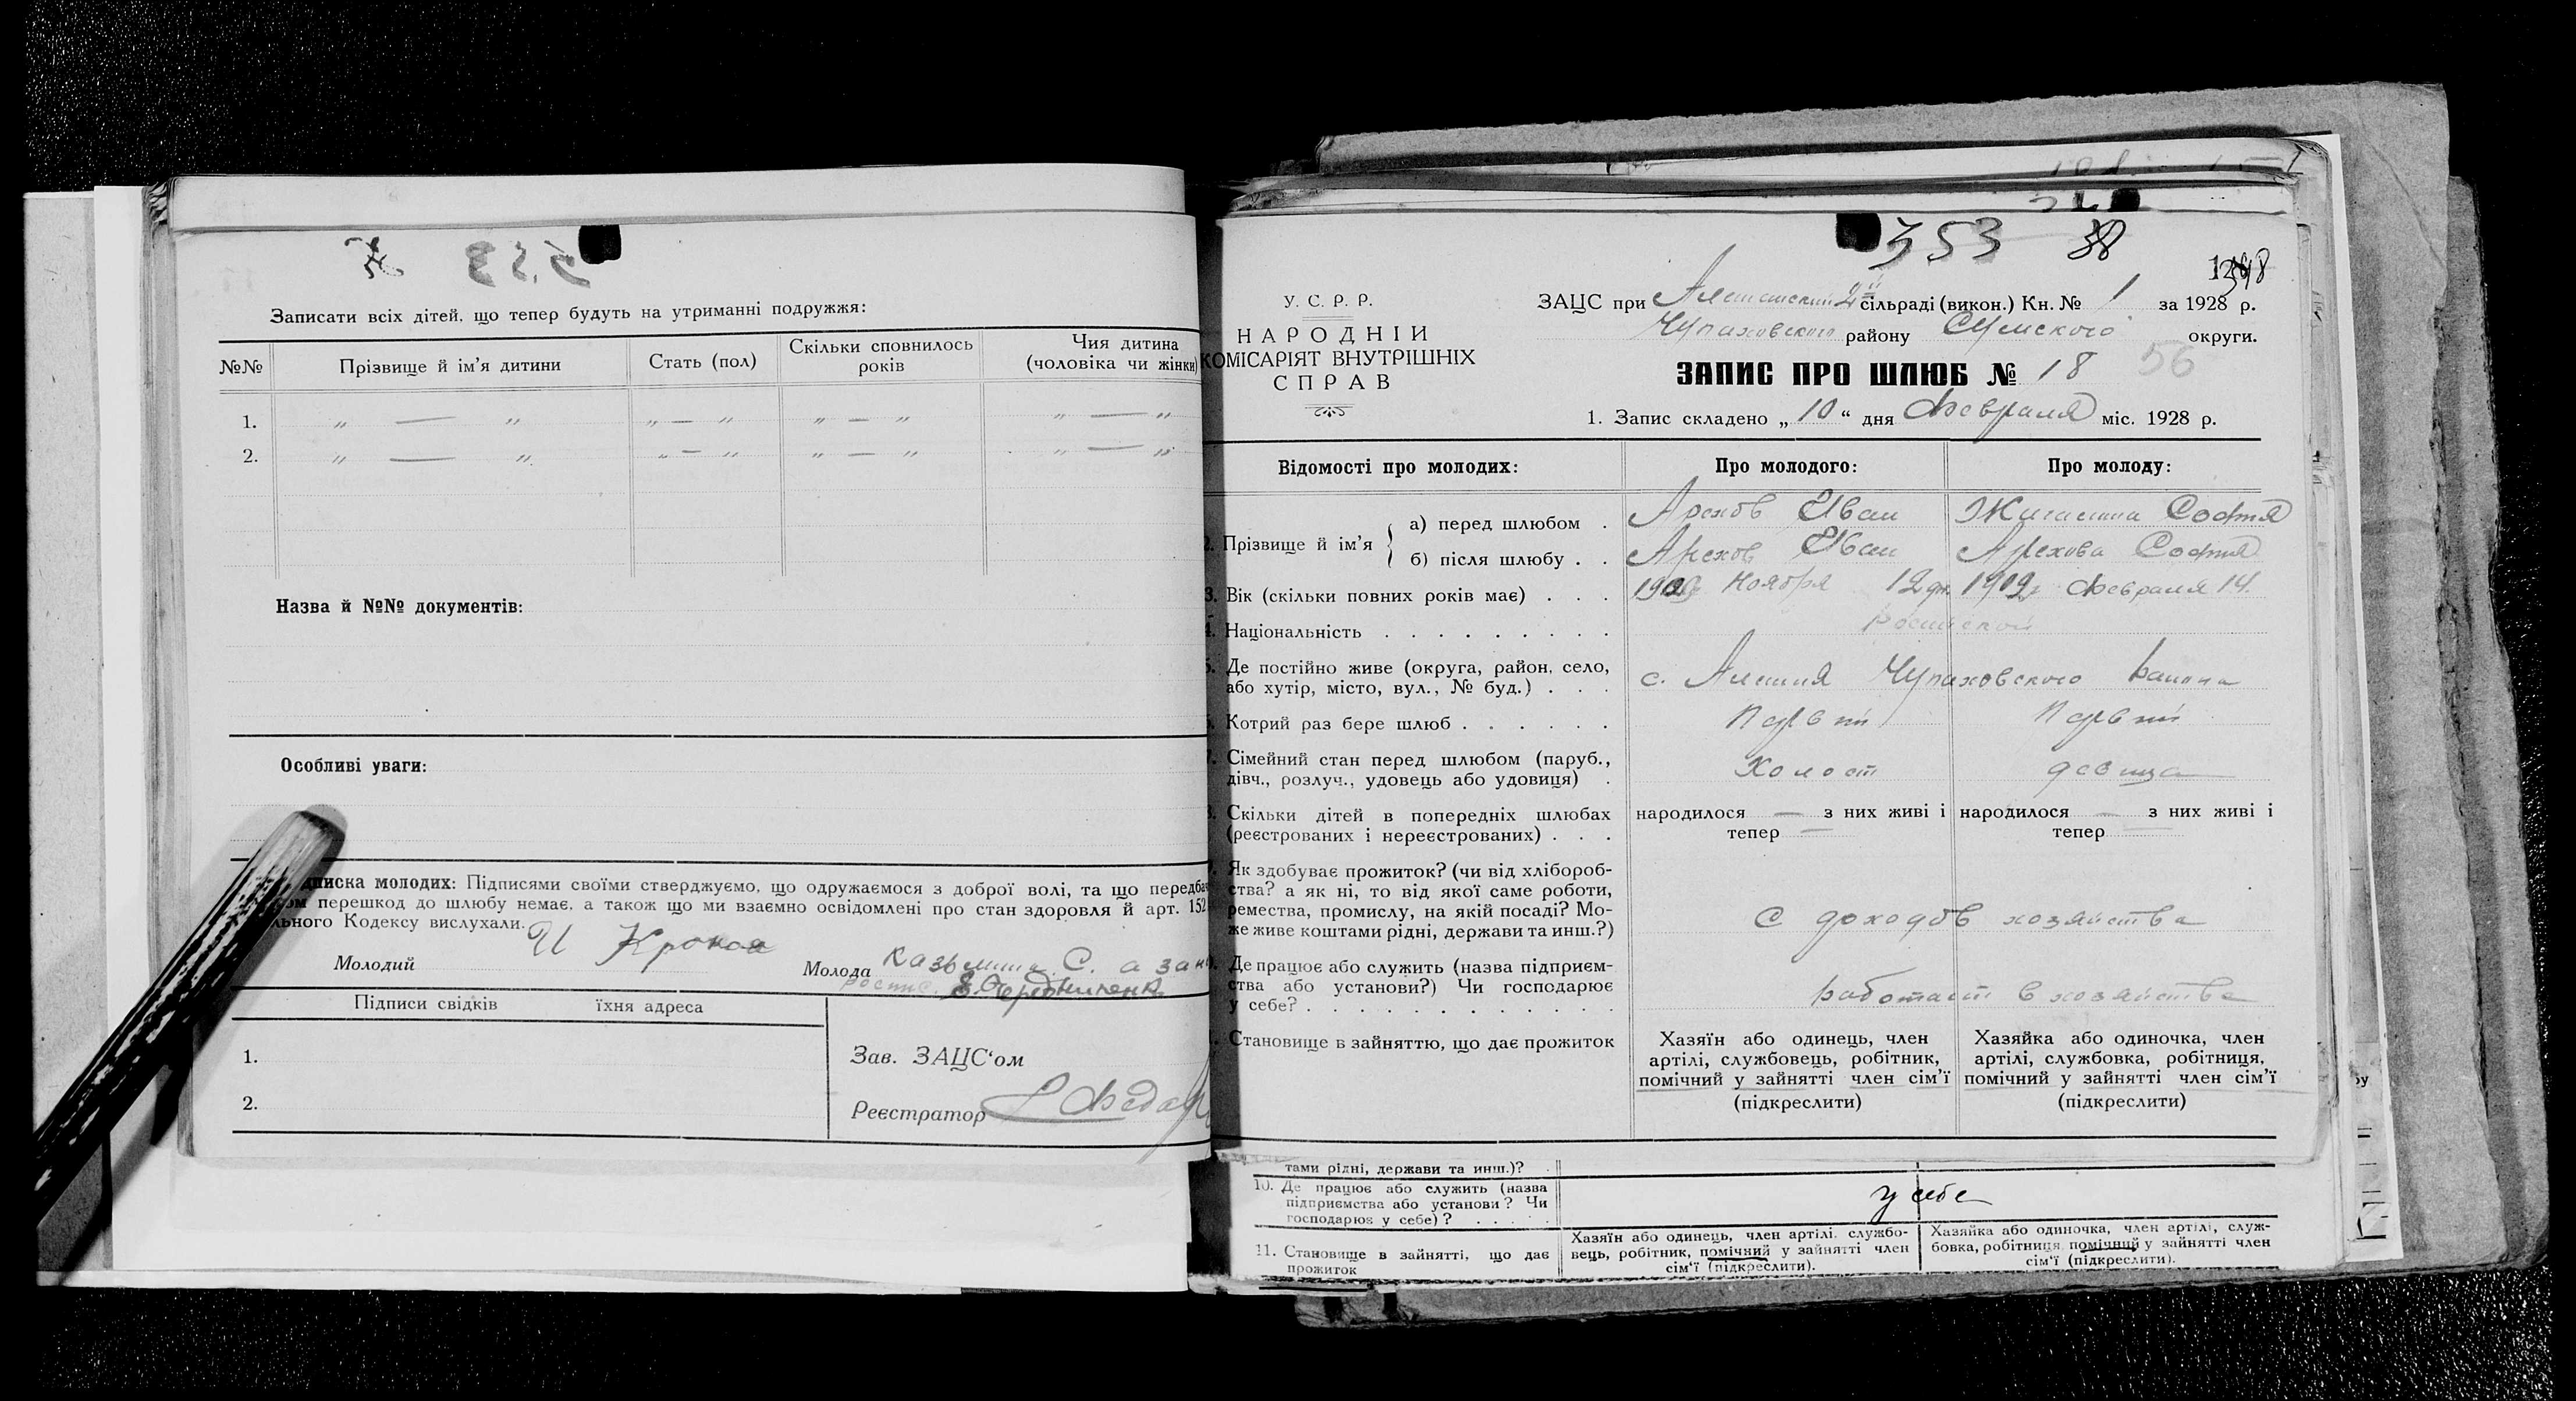 353 38
Записати всіх дітей, що тепер будуть на утриманні подружжя:
№№ Прізвище й ім’я дитини Стать (пол) Скільки сповнилось років Чия дитина (чоловіка чи жінки)
1. „ — „ „ — „ „ — „ „ — „
2. „ — „ „ — „ „ — „ „ — „
Назва й №№ документів:
Особливі уваги:
писка молодих: Підписями своїми стверджуємо, що одружаємося з доброї волі, та що передба
ом перешкод до шлюбу немає, а також що ми взаємно освідомлені про стан здоровля й арт. 152
льного Кодексу вислухали.
Молодий И
Молода С. а за
Підписи свідків їхня адреса
1.
2.
Зав. ЗАЦС‘ом
Реєстратор
У. С. Р. Р.
НАРОДНІЙ
КОМІСАРІЯТ ВНУТРІШНІХ
СПРАВ
ЗАЦС при сільраді (викон.) Кн. № 1 за 1928 р.
Чупаховского району Сумского округи.
ЗАПИС ПРО ШЛЮБ № 18 56
1. Запис складено „ 10 “ дня Февраля міс. 1928 р.
Відомості про молодих: Про молодого: Про молоду:
Прізвище й ім’я
а) перед шлюбом . Арехов Иван Софія
б) після шлюбу . . Арехов Иван Арехова Софія
3. Вік (скільки повних років має) . . . Ноября 12 дн. 1909 г Февраля 14.
Національність . . . . . . . . .
Де постійно живе (округа, район, село,
або хутір, місто, вул., № буд.) . . . с. Алешня Чупаховского района
Котрий раз бере шлюб . . . . . . Первий Первий
Сімейний стан перед шлюбом (паруб.,
дівч., розлуч., удовець або удовиця) . Холост девица
Скільки дітей в попередніх шлюбах
(реєстрованих і нереєстрованих) . . .
народилося — з них живі і тепер —
народилося — з них живі і тепер —
Як здобуває прожиток? (чи від хлібороб-
ства? а як ні, то від якої саме роботи,
ремества, промислу, на якій посаді? Мо-
же живе коштами рідні, держави та инш.?)
С доходов хозяйства
Де працює або служить (назва підприєм-
ства або установи?) Чи господарює
у себе? . . . . . . . . . . . .
работает в хозяйстве
Становище в зайняттю, що дає прожиток
Хазяїн або одинець, член
артілі, службовець, робітник,
помічний у зайнятті член сім’ї
(підкреслити)
Хазяйка або одиночка, член
артілі, службовка, робітниця,
помічний у зайнятті член сім’ї
(підкреслити)
тами рідні, держави та инш.)?
10. Де працює або служить (назва
підприємства або установи? Чи
господарює у себе)? . . . . .
у себе
11. Становище в зайнятті, що дає
прожиток
Хазяїн або одинець, член артілі, службо-
вець, робітник, помічний у зайнятті член
сім‘ї (підкреслити).
Хазяйка або одиночка, член артілі, служ-
бовка, робітниця, помічний у зайнятті член
сім‘ї (підкреслити).